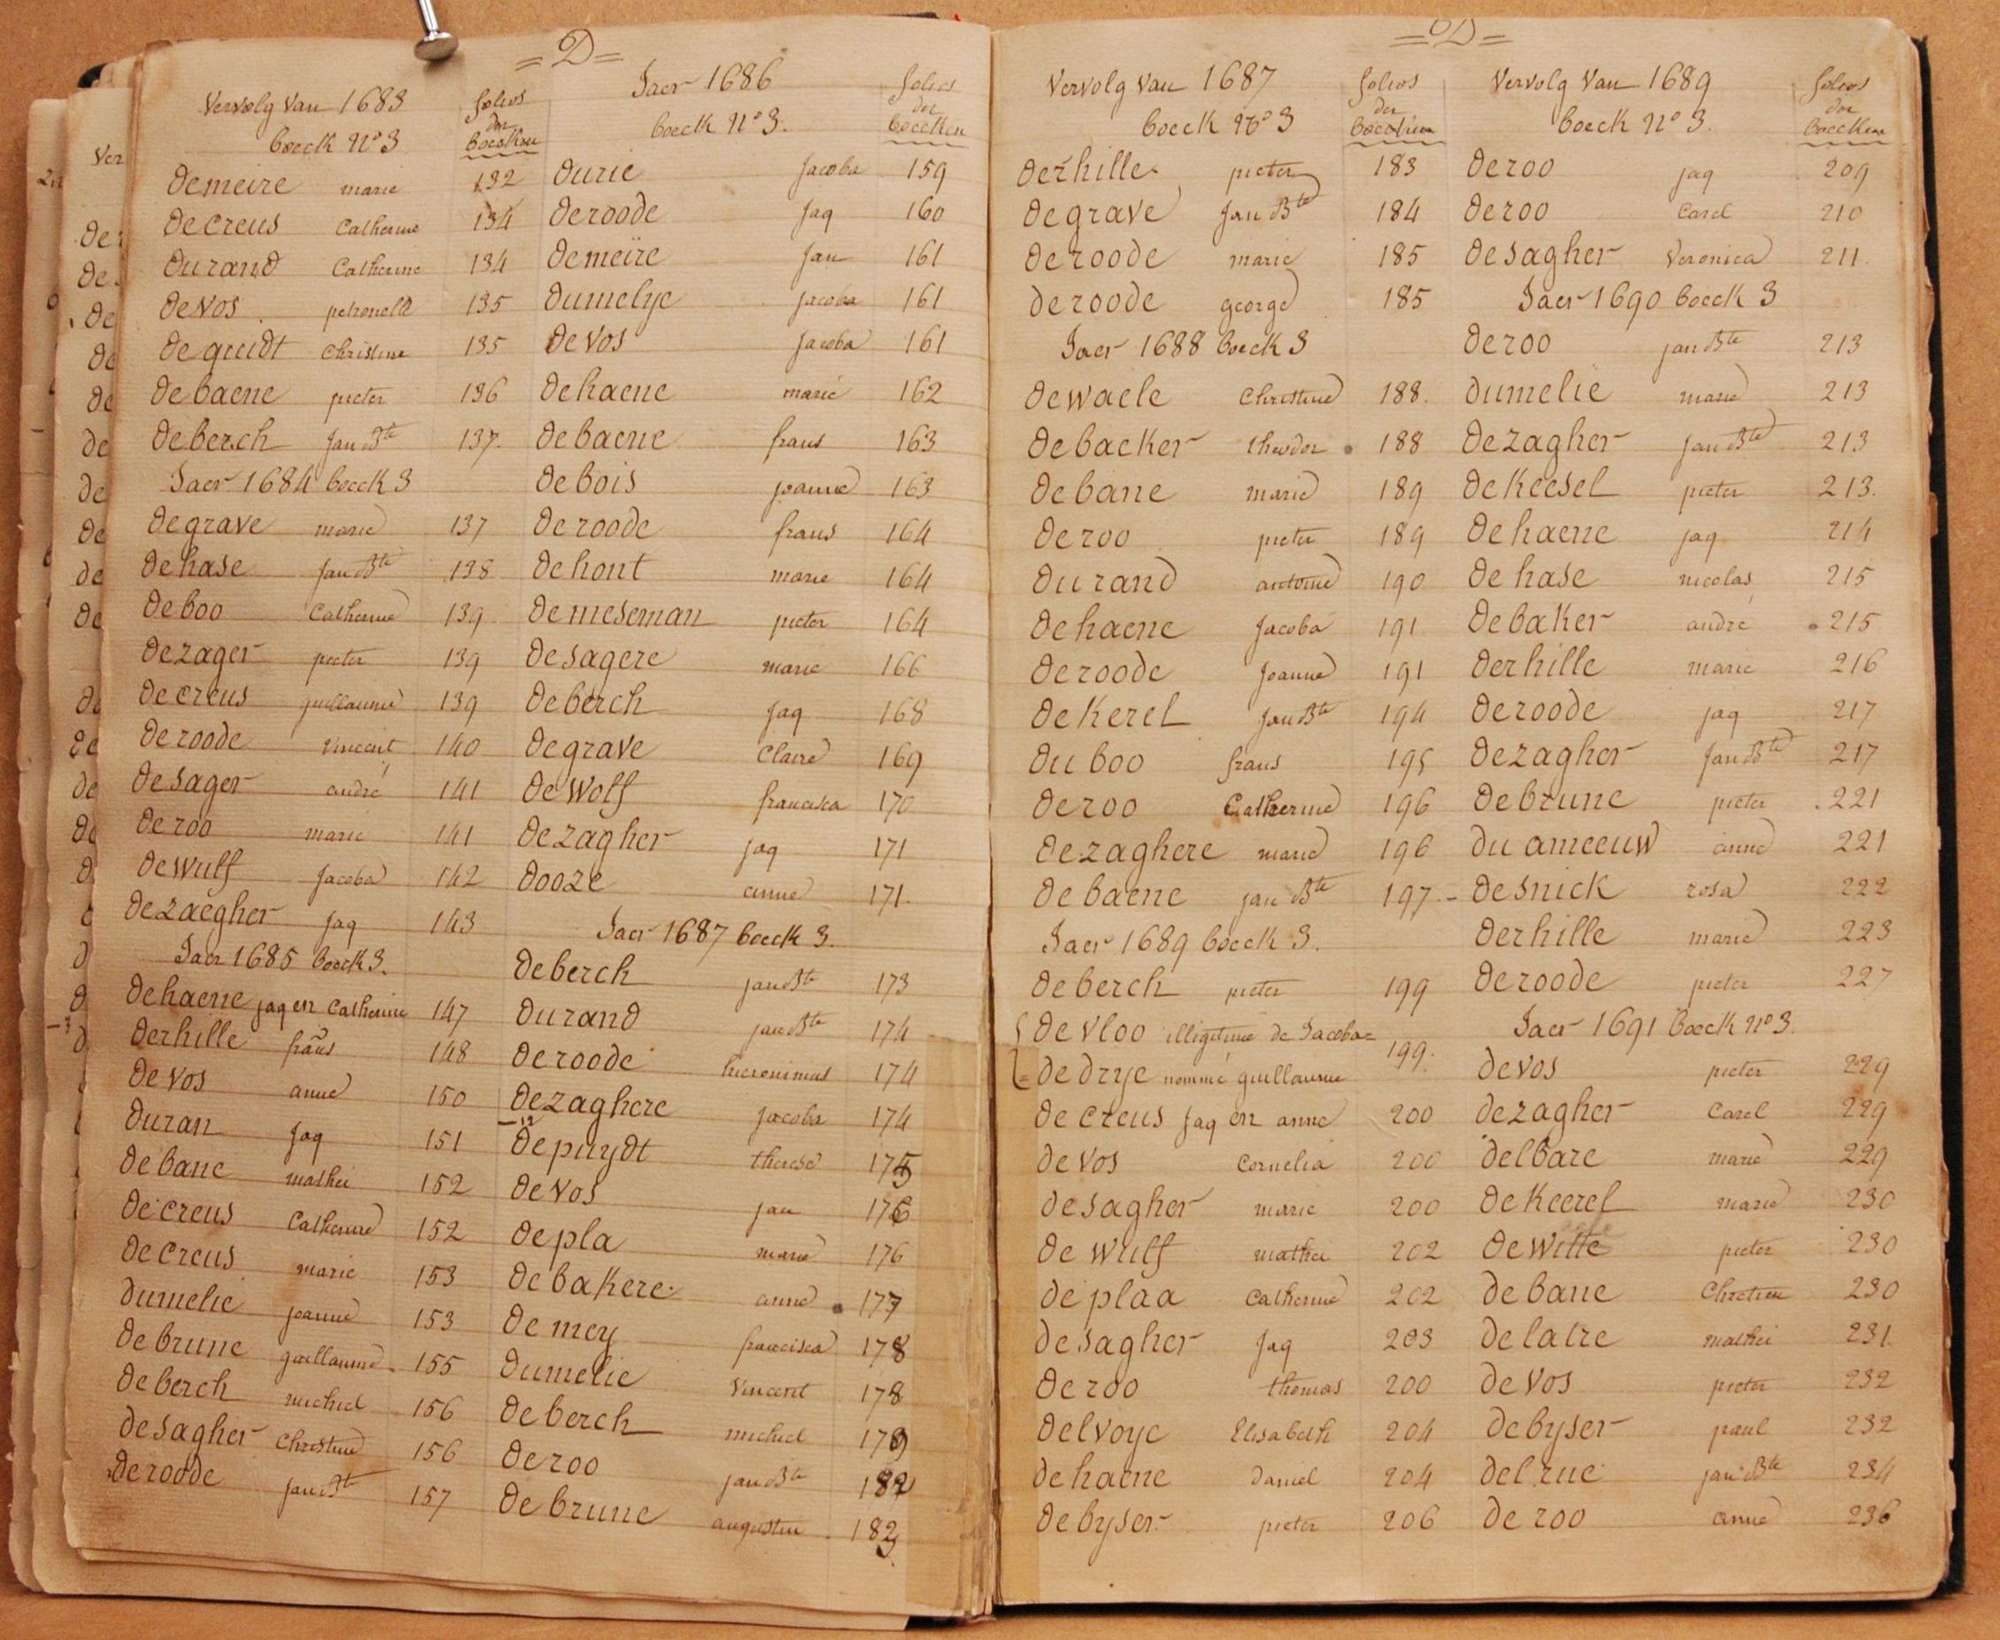 = D =
Vervolg van 1683 folios
boeck N° 3 der boecken
demeire marie 132
decreus Catherine 134
durand Catherine 134
devos petronelle 135
de guidt Christine 135
debaene pieter 136
deberch Jan Bte 137
Jaer 1684 boeck 3
degrave marie 137
dehase Jan Bte 138
deboo Catherine 139
dezager pieter 139
decreus guillaume 139
deroode vincent 140
desager andré 141
deroo marie 141
dewulf Jacoba 142
dezaegher Jaq 143
Jaer 1685 boeck 3.
dehaene jaq en Catherine 147
derhille frans 148
devos anne 150
duran Jaq 151
debane mathei 152
decreus Catherine 152
decreus marie 153
dumelie joanne 153
debrune guillaume 155
deberch michiel 156
desagher Christine 156
deroode Jan Bte 157
Jaer 1686 folios
boeck N° 3. der boecken
durie Jacoba 159
deroode Jaq 160
demeire Jan 161
dumelye jacoba 161
devos Jacoba 161
dehaene marie 162
debaene frans 163
debois joanne 163
deroode frans 164
dehont marie 164
demeseman pieter 164
desagere marie 166
deberch Jaq 168
degrave Claire 169
deWolf francisca 170
dezagher jaq 171
dooze anne 171.
Jaer 1687 boeck 3.
deberch jan Bte 173
durand jan Bte 174
deroode hieronimus 174
dezaghere jacoba 174
depuydt therese 175
devos jan 176
depla marie 176
debakere anne 177
demey francisca 178
dumelie Vincent 178
deberch michiel 179
deroo jan Bte 182
debrune augustin 182
= D =
Vervolg van 1687 folios
boeck N° 3 der boecken
derhille pieter 183
degrave Jan Bte 184
deroode marie 185
deroode george 185
Jaer 1688 boeck 3
dewaele Christine 188.
debacker theodor 188
debane marie 189
deroo pieter 189
durand antoine 190
dehaene Jacoba 191
deroode Joanne 191
deKerel Jan Bte 194
duboo frans 195
deroo Catherine 196
dezaghere marie 196
debaene jan Bte 197.
Jaer 1689 boeck 3.
deberch pieter 199
devloo illigitime de Jacoba
dedrye nommé guillaume 199.
decreus Jaq en anne 200
devos Cornelia 200
desagher marie 200
de wulf mathei 202
deplaa Catherine 202
desagher Jaq 203
deroo thomas 200
delvoye Elisabeth 204
dehaene daniel 204
debyser pieter 206
Vervolg van 1689 folios
boeck N° 3. der boecken
deroo jaq 209
deroo Carel 210
desagher Veronica 211.
Jaer 1690 boeck 3
deroo jan Bte 213
dumelie marie 213
dezagher Jan Bte 213
deKeesel pieter 213.
dehaene jaq 214
dehase nicolas 215
debaker andré 215
derhille marie 216
deroode jaq 217
dezagher Jan Bte 217
debrune pieter 221
du ameeuw anne 221
desnick rosa 222
derhille marie 223
deroode pieter 227
Jaer 1691 boeck N° 3.
devos pieter 229
dezagher Carel 229
delbare marie 229
deKeerel marie 230
dewitte pieter 230
debane Chretien 230
delatre mathei 231
devos pieter 232
debyser paul 232
delrue jan Bte 234
deroo anne 236